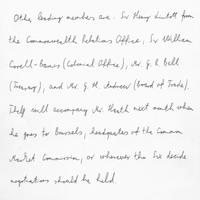 Other leading members are: Sir Henry Lintott from
the Commonwealth Relations Office, Sir William
Gorell-Barnes (Colonial Office), Mr. G. R. Bell
(Treasury), and Mr. G. H. Andrew (Board of Trade).
They will accompany Mr. Heath next month when
he goes to Brussels, headquarters of the Common
Market Commission, or whenever the Six decide
negotiations should be held.